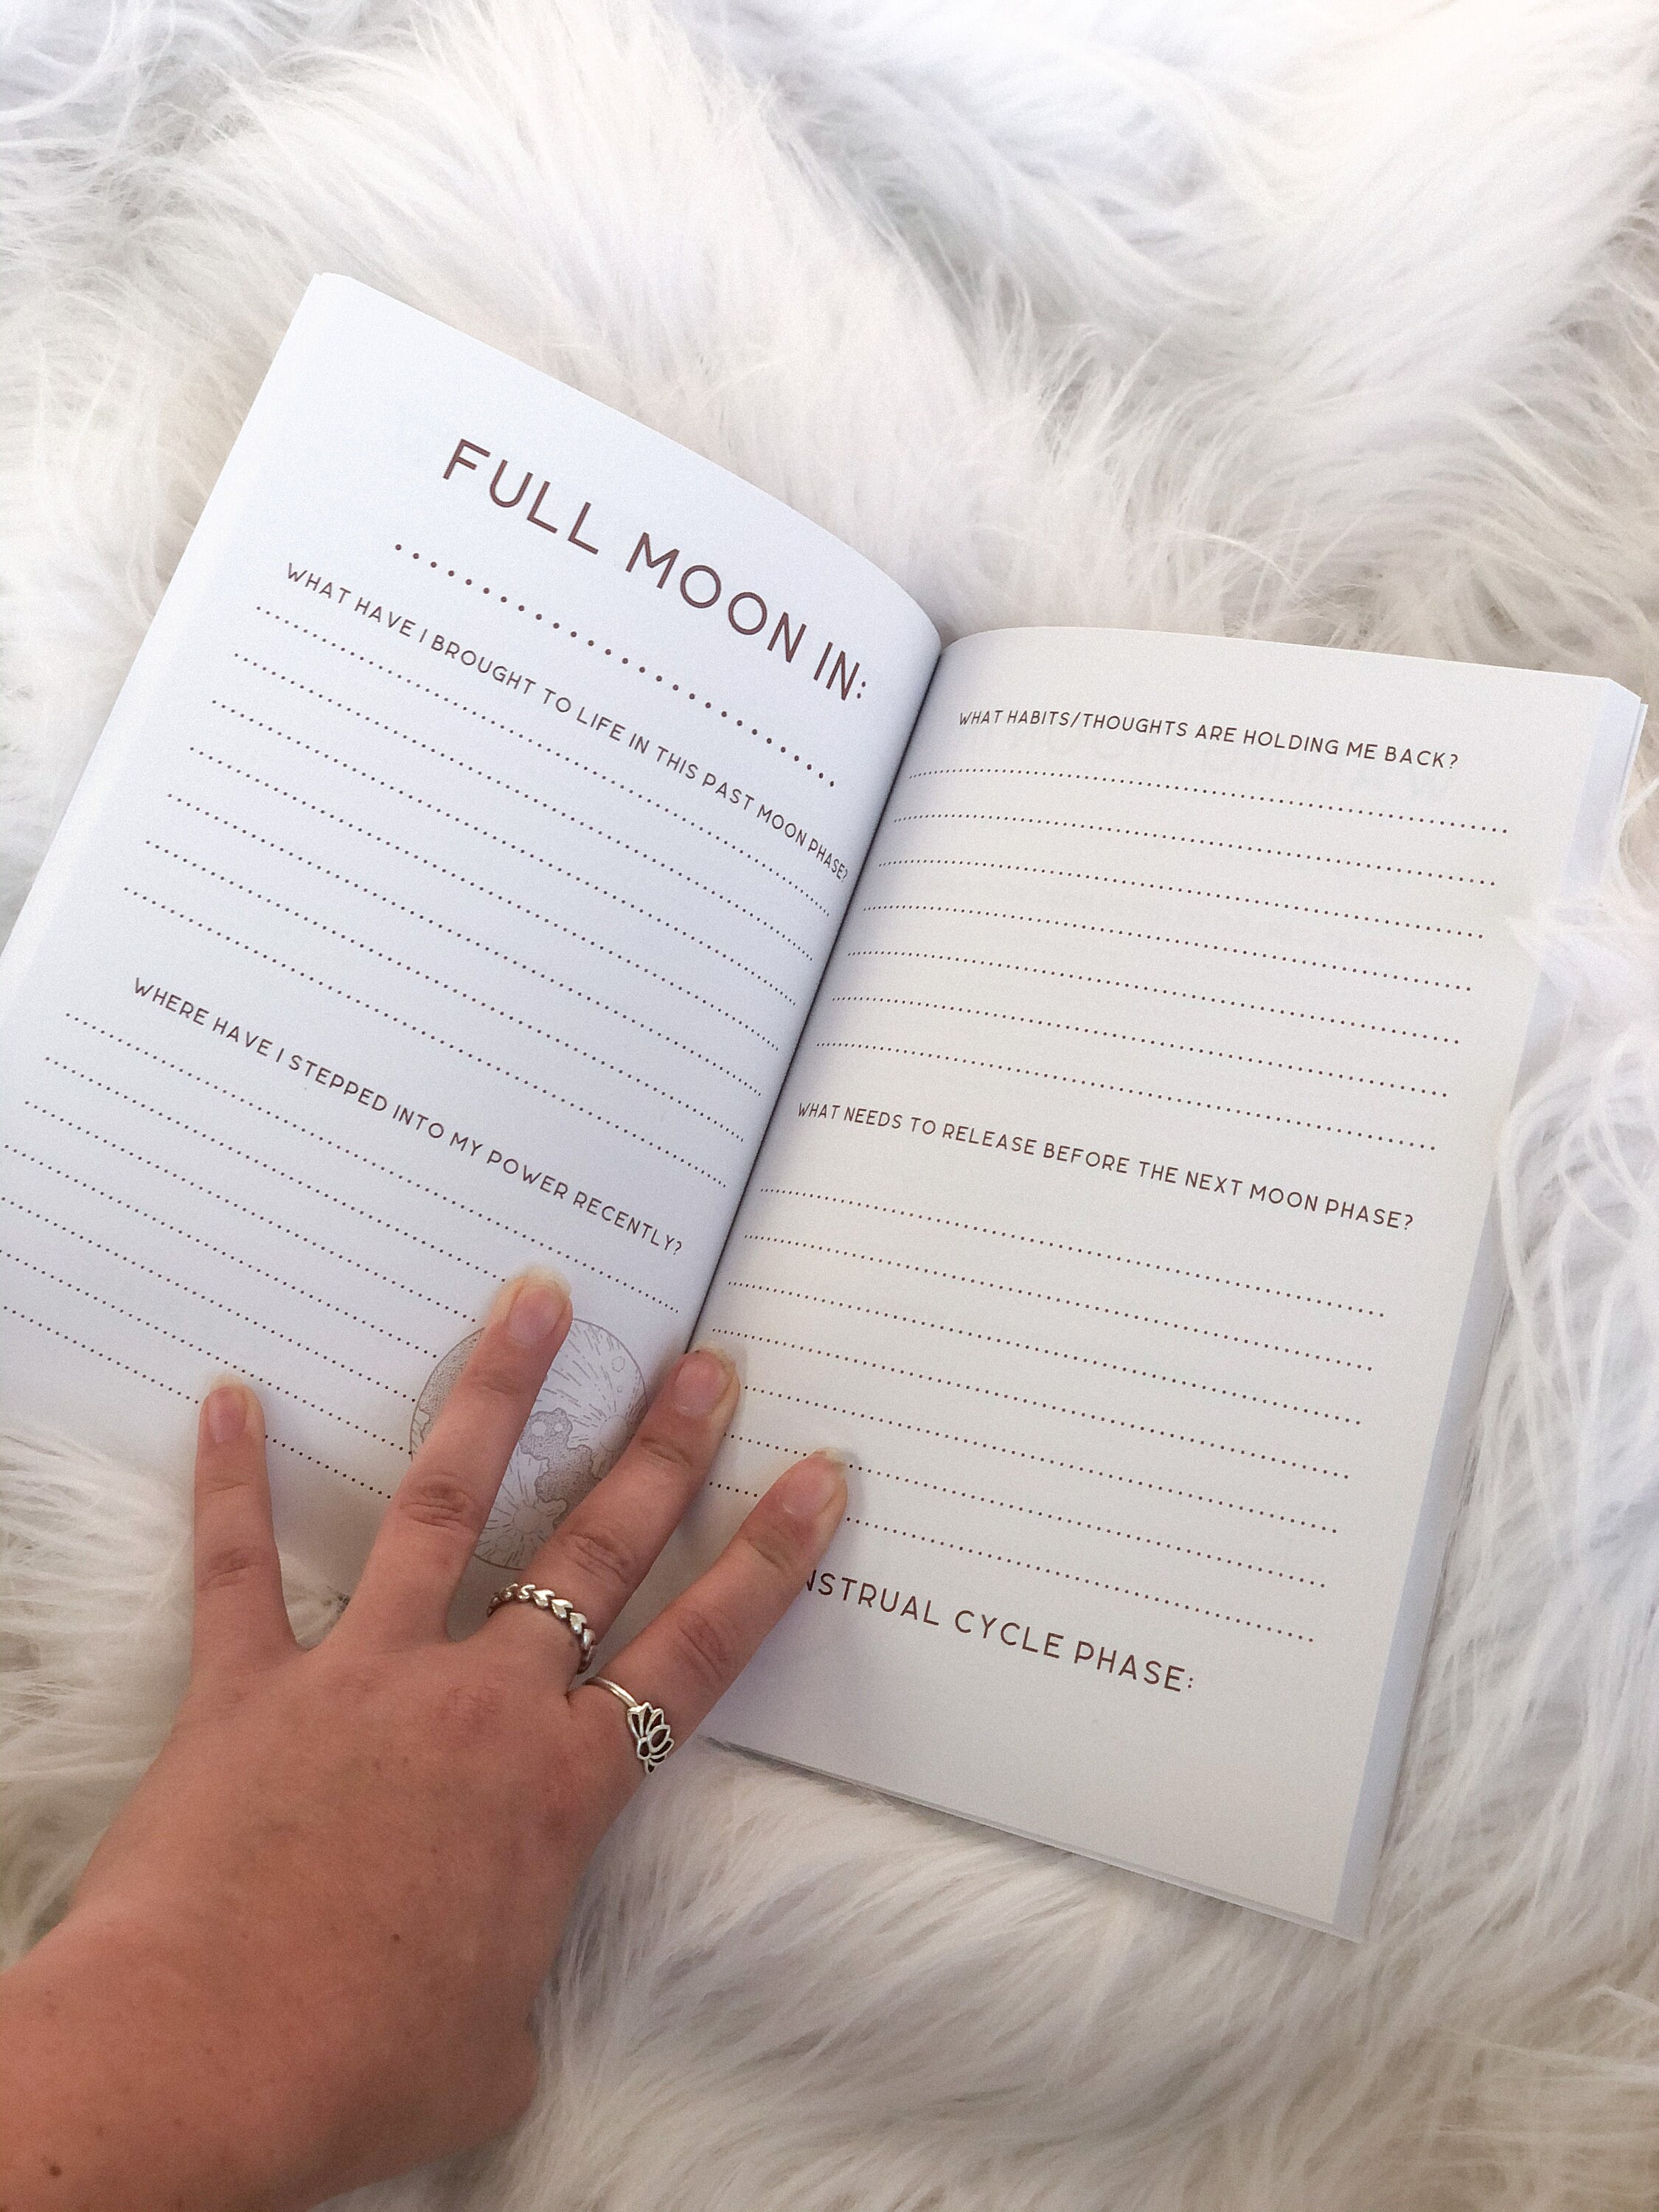 FULL MOON IN:
WHAT HAVE I BROUGHT TO LIFE IN THIS PAST MOON PHASE?
WHERE HAVE I STEPPED INTO MY POWER RECENTLY?
WHAT HABITS/THOUGHTS ARE HOLDING ME BACK?
WHAT NEEDS TO RELEASE BEFORE THE NEXT MOON PHASE?
CYCLE PHASE: